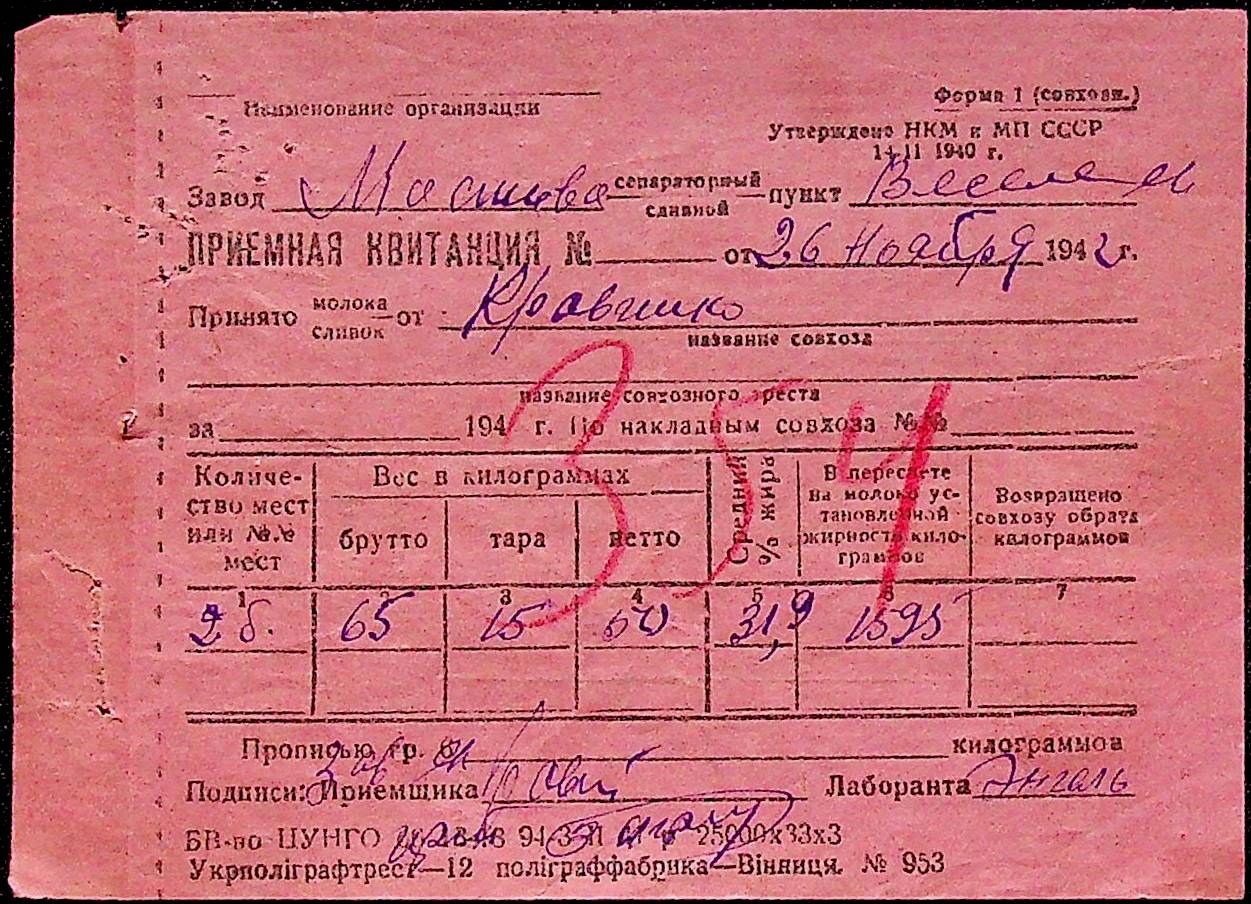 Наименование организации
Форма 1 (совхозн.)
Утверждено НКМ и МП СССР
14 II 1940 г.
Завод сепараторный сливной пункт
ПРИЕМНАЯ КВИТАНЦИЯ № от 26 Ноября 1942 г.
Принято молока сливок от
название совхоза
название совхозного треста
за 194 г. По накладным совхоза №№
Количе-
ство мест
или №№
мест
Вес в килограммах
брутто тара нетто
Средний
% жира
В пересчете
на молоко ус-
тановленной
жирности кило-
граммов
Возвращено
совхозу обрата
килограммов
1 2 3 4 5 6 7
2 б. 65 15 50 31,9 1595
354
Прописью гр. 6 килограммов
Подписи: Приемщика Лаборанта Энгель
25000х33х3
Укрполіграфтрест—12 поліграффабрика—Вінниця. № 953